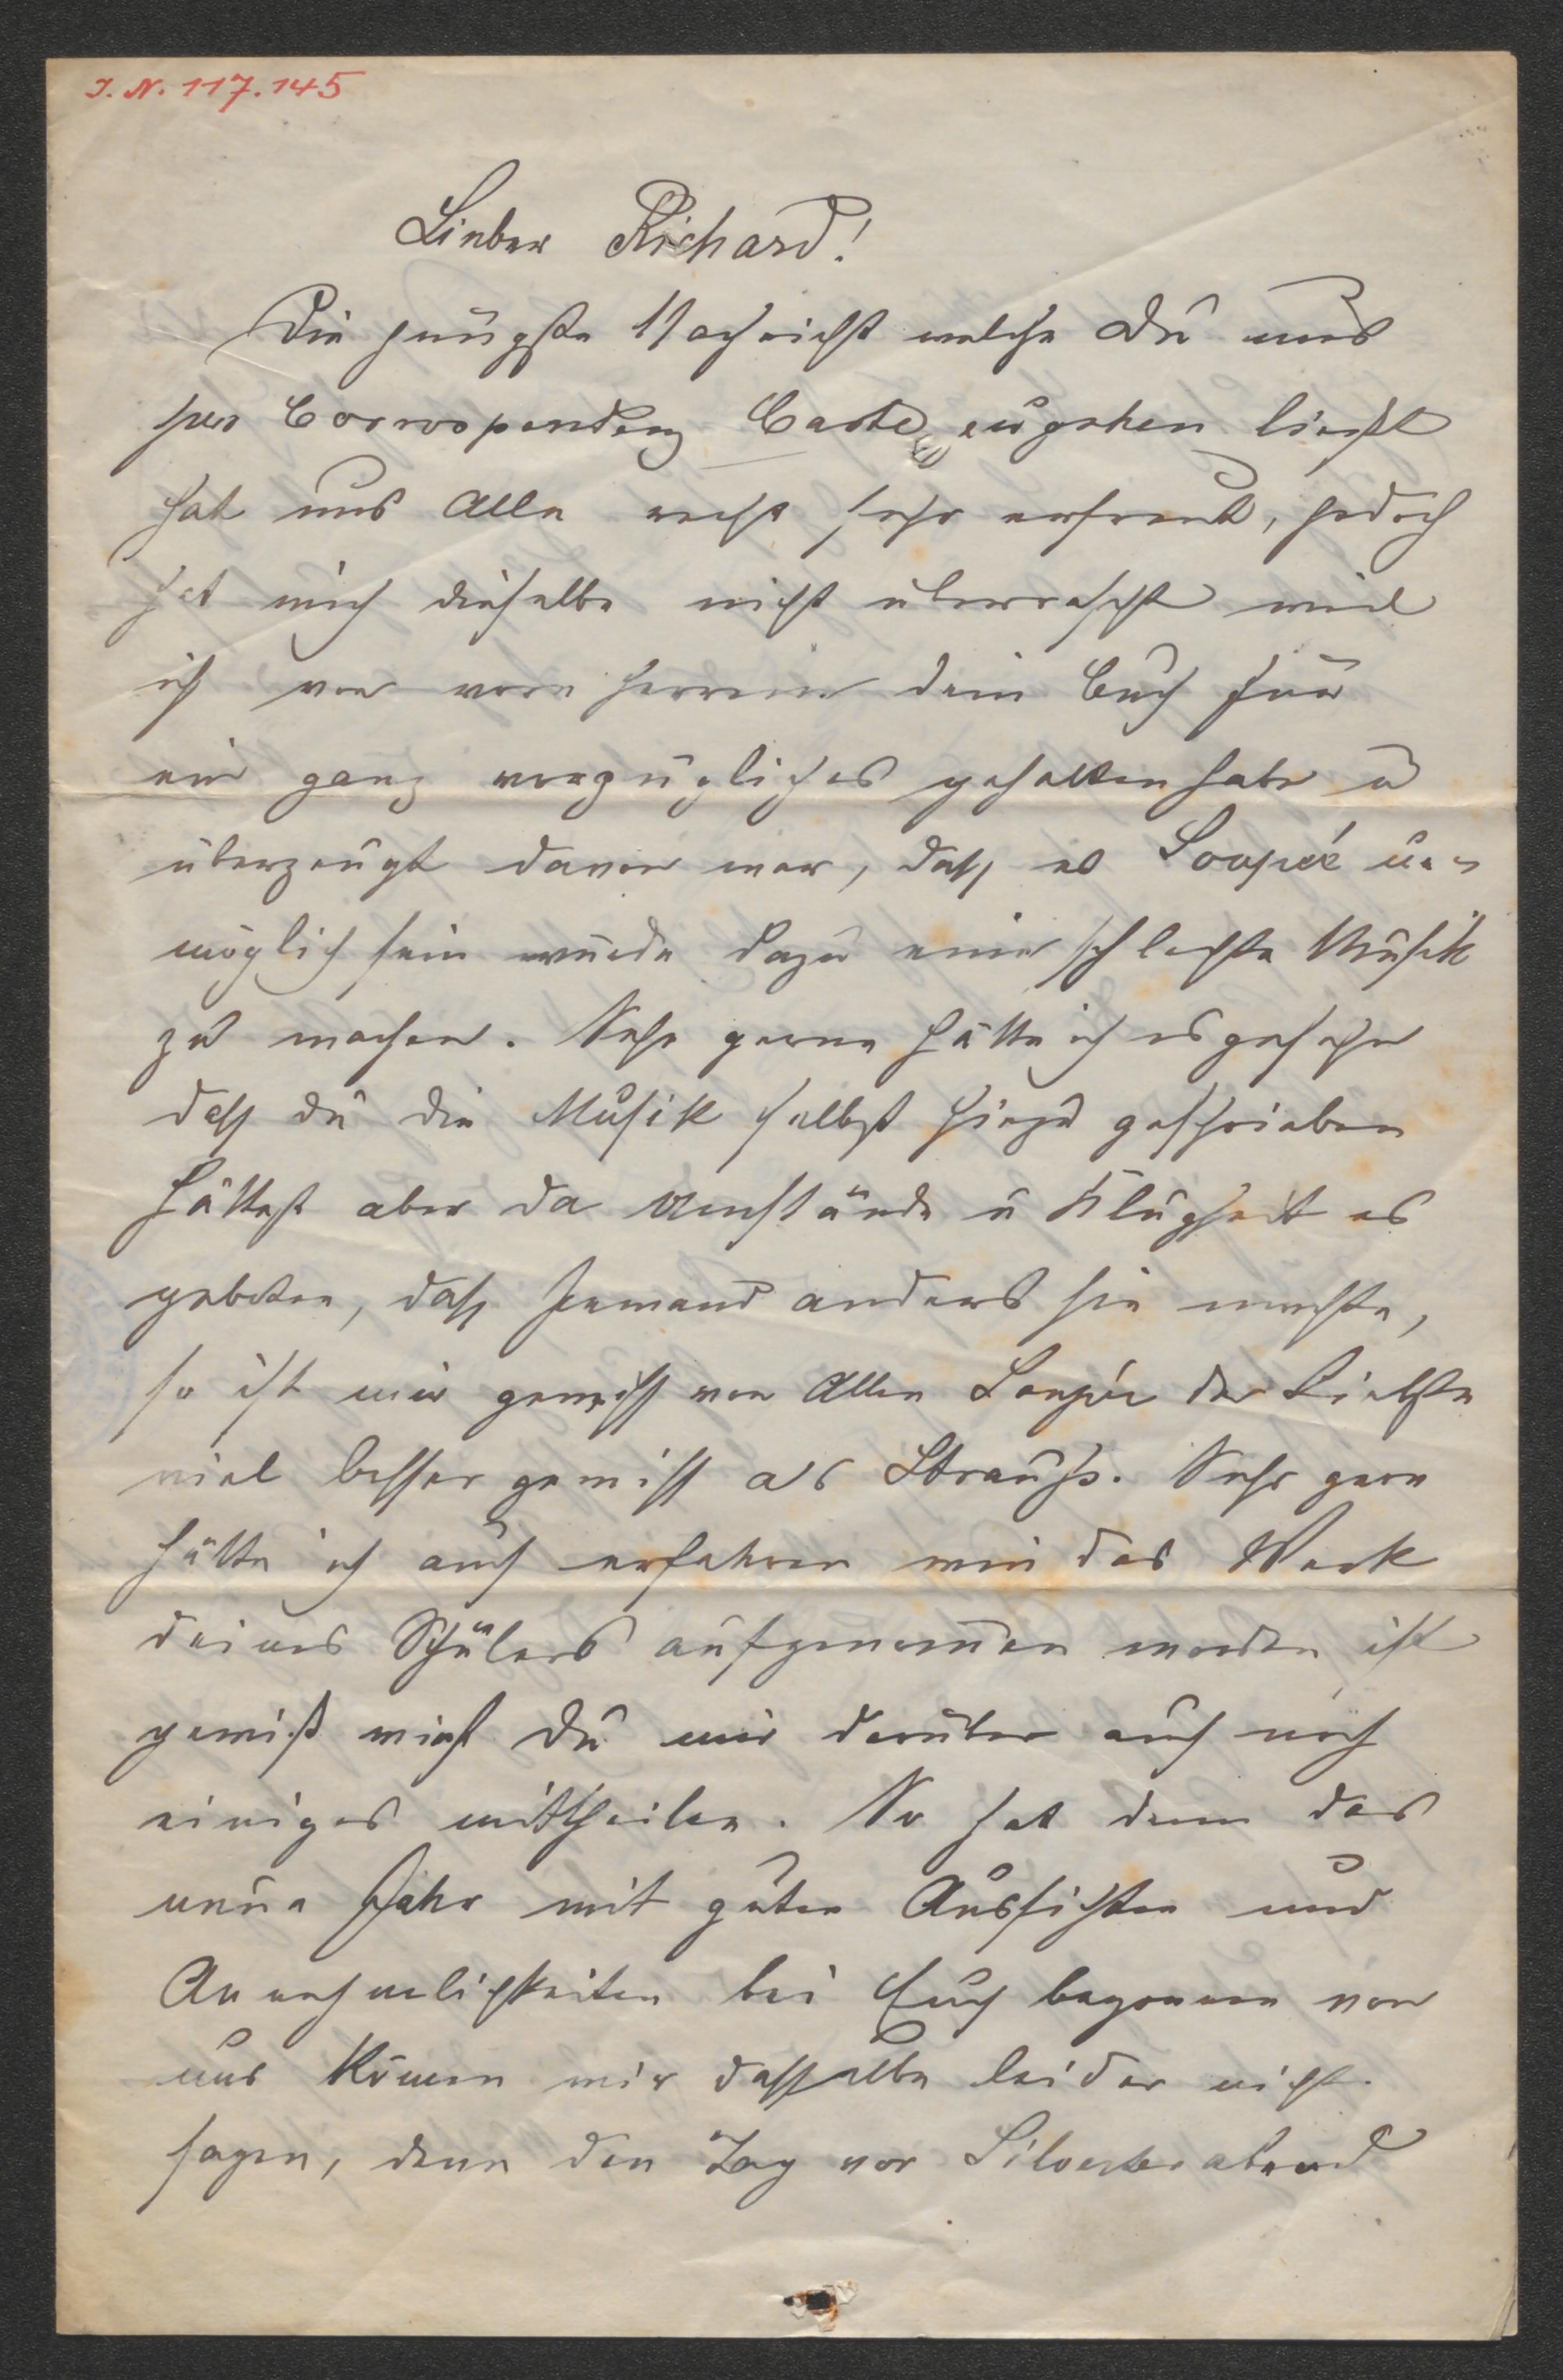 I. N. 117.145
Lieber Richard!
Die jüngste Nachricht welche Du uns
per Correspondenz Carte zugehen ließst
hat uns Alle recht sehr erfreut, jedoch
hat mich dieselbe nicht überrascht weil
ich von vorn herrein dein Buch für
ein ganz vorzügliches gehalten habe u
überzeugt davon war, dass es Souppé un-
möglich sein würde dazu eine schlechte Musik
zu machen. Sehr gerne hätte ich es gesehen
dass du die Musik selbst hiezu geschrieben
hättest aber da Umstände u Klugheit es
geboten, dass Jemand anders sie machte,
so ist mir gewiss von Allen Soupée der Liebste
viel besser gewiss als Strauß. Sehr gern
hätte ich auch erfahren wie das Werk
deines Schülers aufgenommen worden ist
gewiß wirst Du mir darüber auch noch
einiges mittheilen. So hat denn das
neue Jahr mit guten Aussichten und
Annehmlichkeiten bei Euch begonnen von
uns können wir dasselbe leider nicht
sagen, denn den Tag vor Silvesterabend